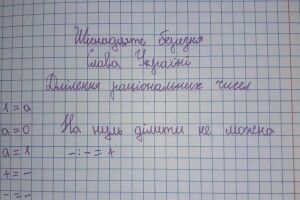 Шістнадцяте березня
Слава Україні
Ділення раціональних чисел
1 = а
а = 0
На нуль ділити не можна
а = 1
- : - = +
+ = -
- = -